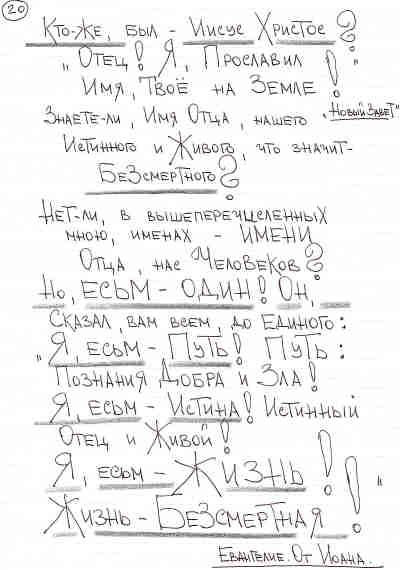 20
Кто-же, был - Иисус Христос?
"Отец! Я, Прославил
Имя, Твоё на Земле!"
Знаете-ли, Имя Отца, нашего "Новый Завет"
Истинного и Живого, что значит-
Безсмертного?
Нет-ли, в вышеперечисленных
мною, именах - ИМЕНИ
Отца, нас Человеков?
Но, ЕСЬМ - ОДИН! Он,
Сказал, вам всем, до Единого:
"Я, есьм - Путь! Путь:
Познания Добра и Зла!
Я, есьм - Истина! Истинный
Отец и Живой!
Я, есьм - Жизнь!
Жизнь - Безсмертная!"
Евангелие. От Иоана.